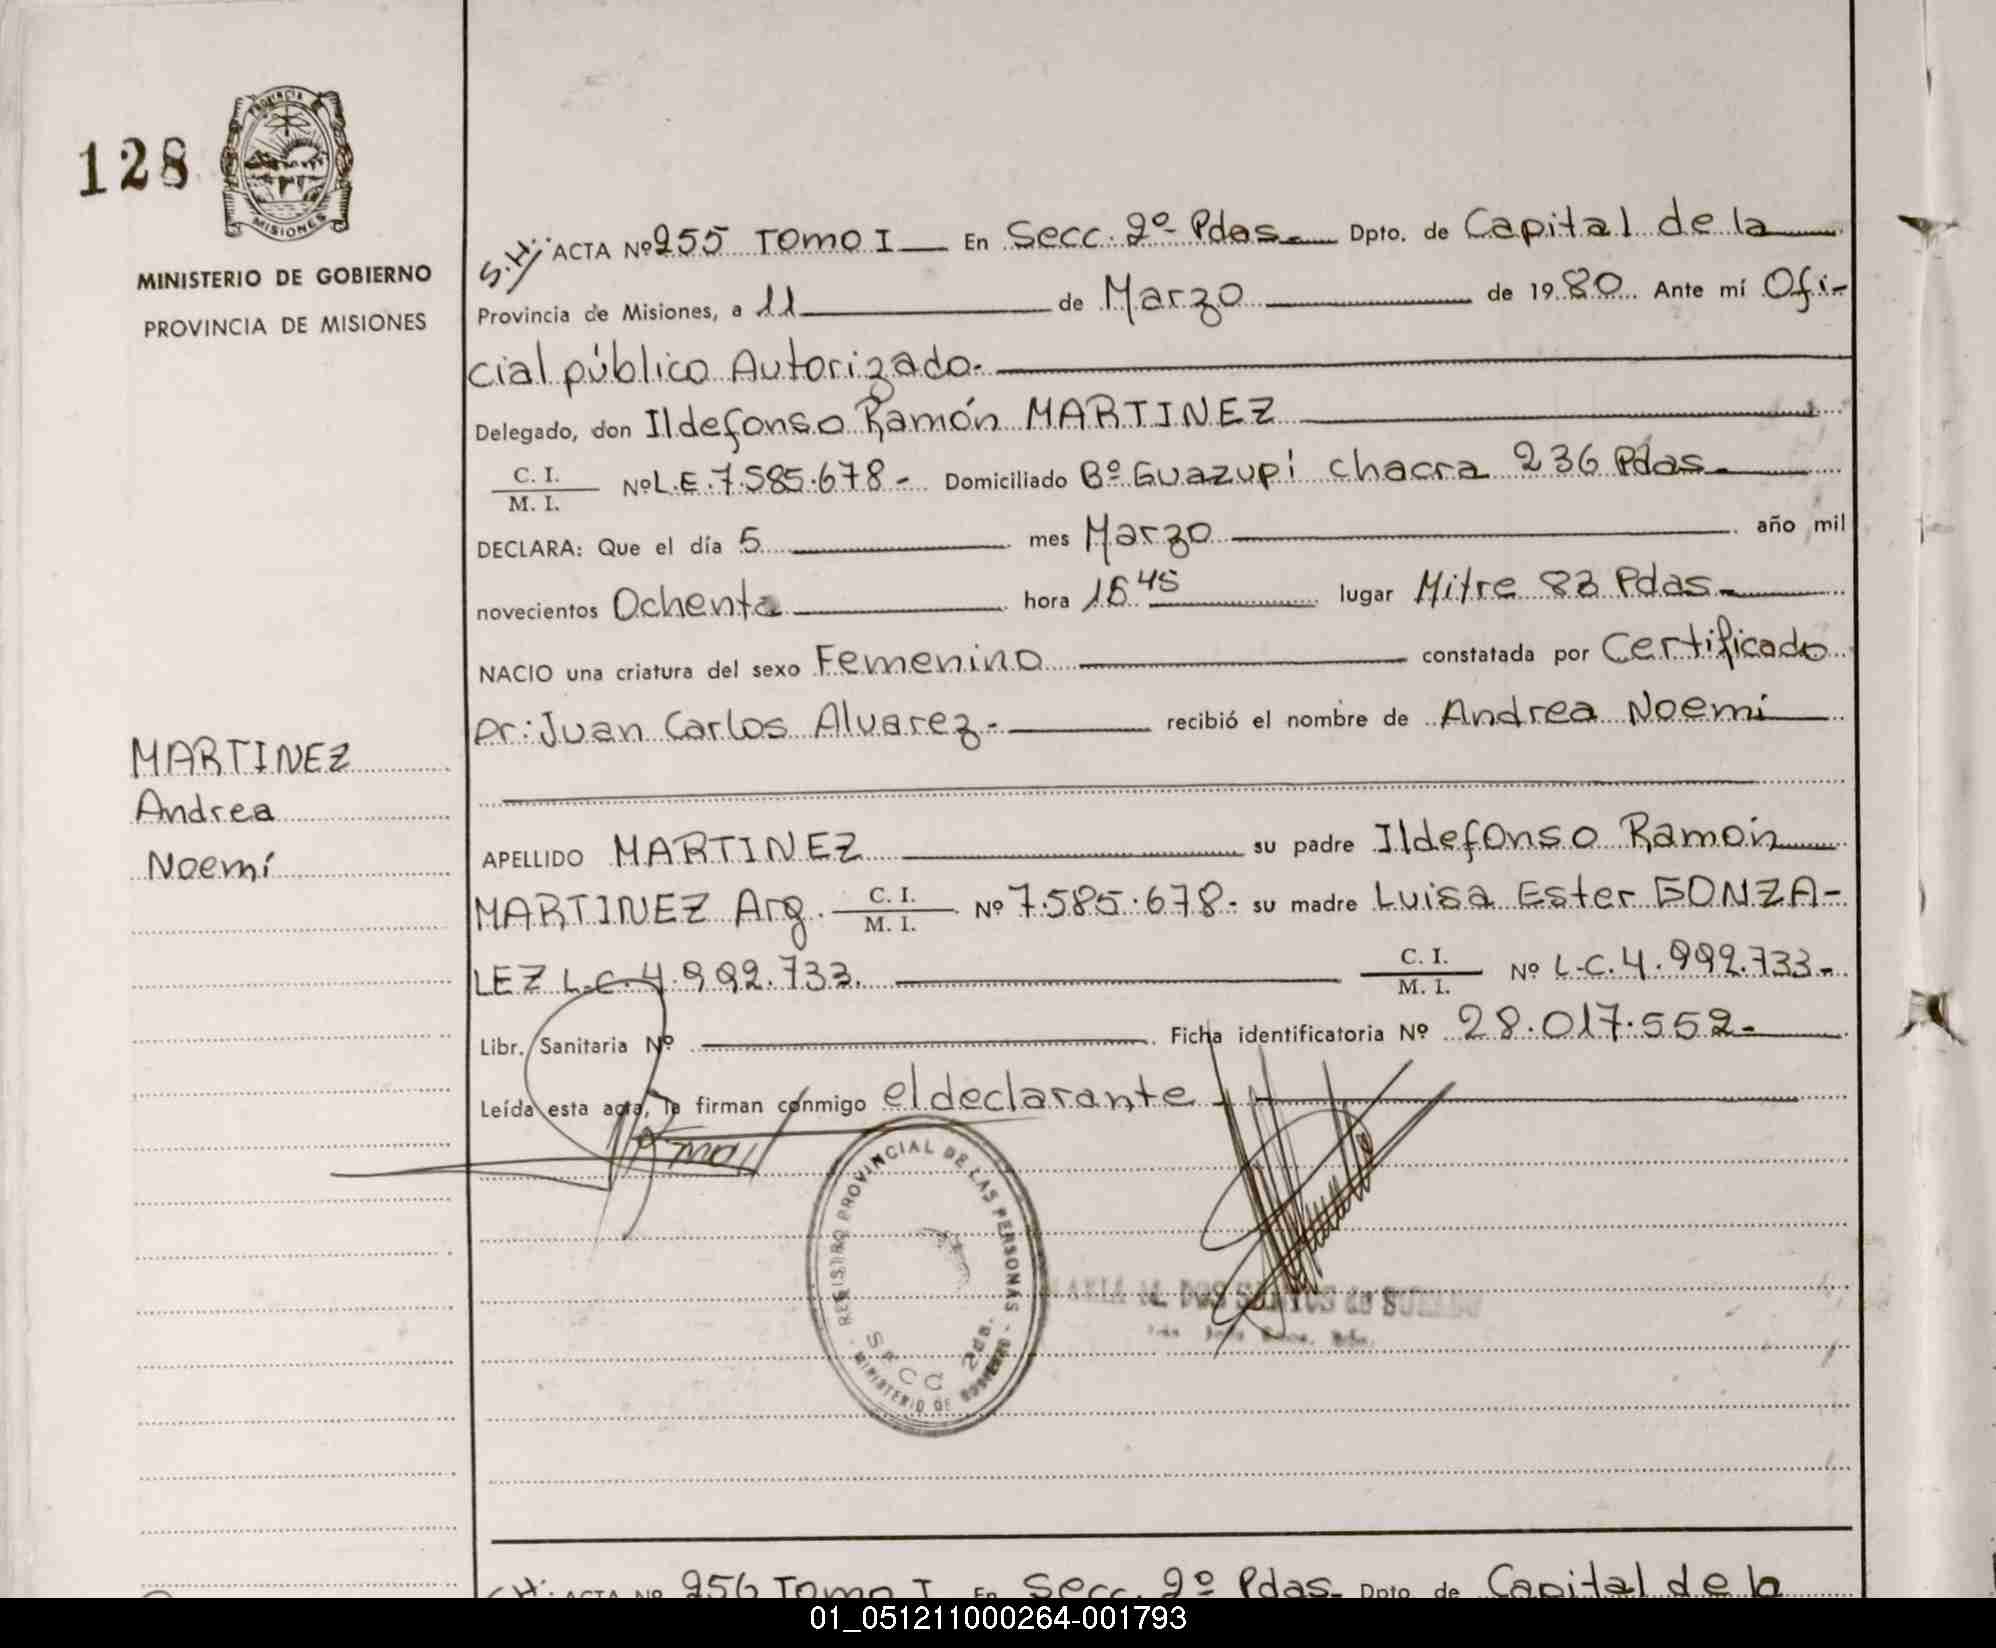 128
PROVINCIA
MISIONES
MINISTERIO DE GOBIERNO
PROVINCIA DE MISIONES
S.H: ACTA Nº 255 Tomo I En Secc. 2º Pdas. Dpto. de Capital de la
Provincia de Misiones, a 11 de Marzo de 1980. Ante mí Ofi-
cial público Autorizado.
Delegado, don Ildefonso Ramón MARTINEZ
C. I.
M. I.
Nº L.E. 7.585.678- Domiciliado Bº Guazupi chacra 236 Pdas.
DECLARA: Que el día 5 mes Marzo año mil
novecientos Ochenta hora 15 45 lugar Mitre 83 Pdas.
NACIO una criatura del sexo Femenino constatada por Certificado
Dr: Juan Carlos Alvarez.- recibió el nombre de Andrea Noemí
MARTINEZ
Andrea
Noemí
APELLIDO MARTINEZ su padre Ildefonso Ramón
MARTINEZ Arg. C. I. M. I. Nº 7.585.678- su madre Luisa Ester GONZA-
LEZ L.C. 4.992.733. C. I. M. I. Nº L.C. 4.992.733-
Libr. Sanitaria Nº Ficha identificatoria Nº 28.017.552-
Leída esta acta, la firman conmigo el declarante
REGISTRO PROVINCIAL DE LAS PERSONAS
SECC 2da.
MINISTERIO DE GOBIERNO
DOS SANTOS de
ACTA Nº 256 Tomo I En Secc. 2º Pdas. Dpto. de Capital de la
01_051211000264-001793